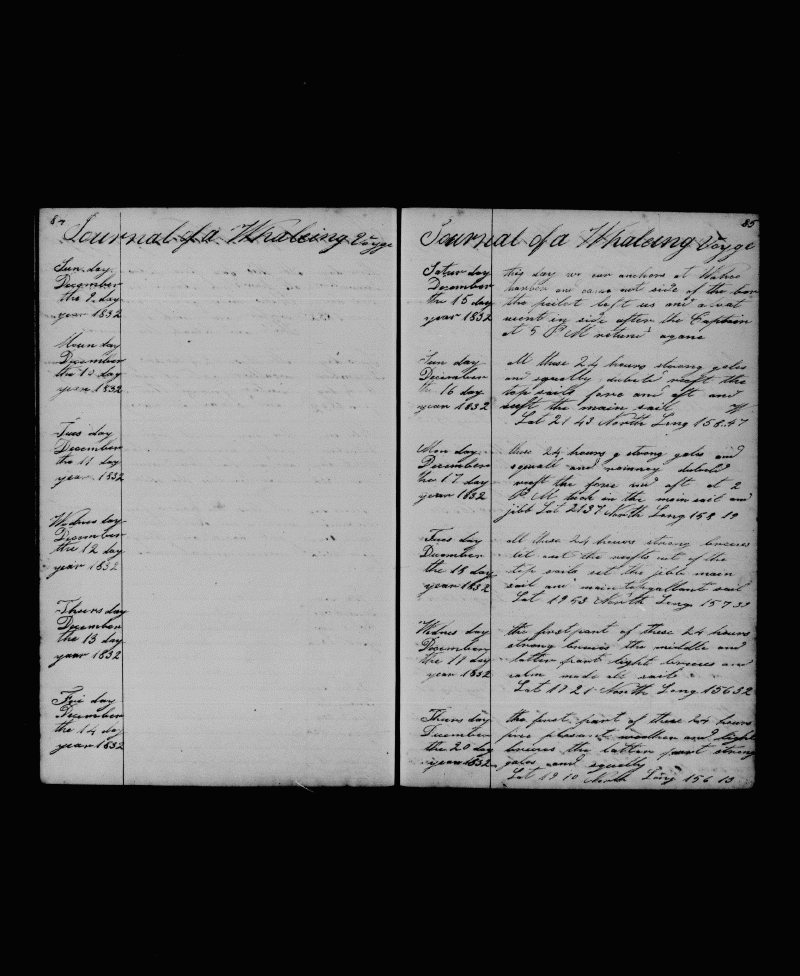 84
Journal of a Whaleing Voyge
Sun day
December
the 9 day
year 1832
Moun day
December
the 10 day
year 1832
Tues day
December
the 11 day
year 1832
Wednes day
December
the 12 day
year 1832
Thurs day
December
the 13 day
year 1832
Fri day
December
the 14 day
year 1832
85
Journal of a Whaleing Voyge
Satur day
December
the 15 day
year 1832
this day we our anchors at
and out side of the bar
the peilot left us and a
went in side after the Captain
at 5 P M returnd agane
Sun day
December
the 16 day
year 1832
all these 24 hours strong gales
and squally dubeld reaft the
top sails fore and aft and
reaft the main sail
Lat 21 43 North Long 158.47
Mon day
December
the 17 day
year 1832
these 24 hours strong gales and
squalls and rainney dubeld
reaft the fore and aft at 2
P M tuck in the main sail and
jibb Lat 2137 North Long 158 19
Tues day
December
the 18 day
year 1832
all these 24 hours strong breeses
let out the reefts out of the
top sails set the jibb main
sail and main topgallant sail
Lat 19 53 North Long 157 33
Wednes day
December
the 19 day
year 1832
the first part of these 24 hours
strong breeses the middle and
latter part light breeses and
calm made all sails
Lat 19 21 North Long 156 32
Thurs day
December
the 20 day
year 1832
the first part of these 24 hours
fine plesant weather and light
breeses the latter part strong
gales and squally
Lat 19 10 North Long 156 13